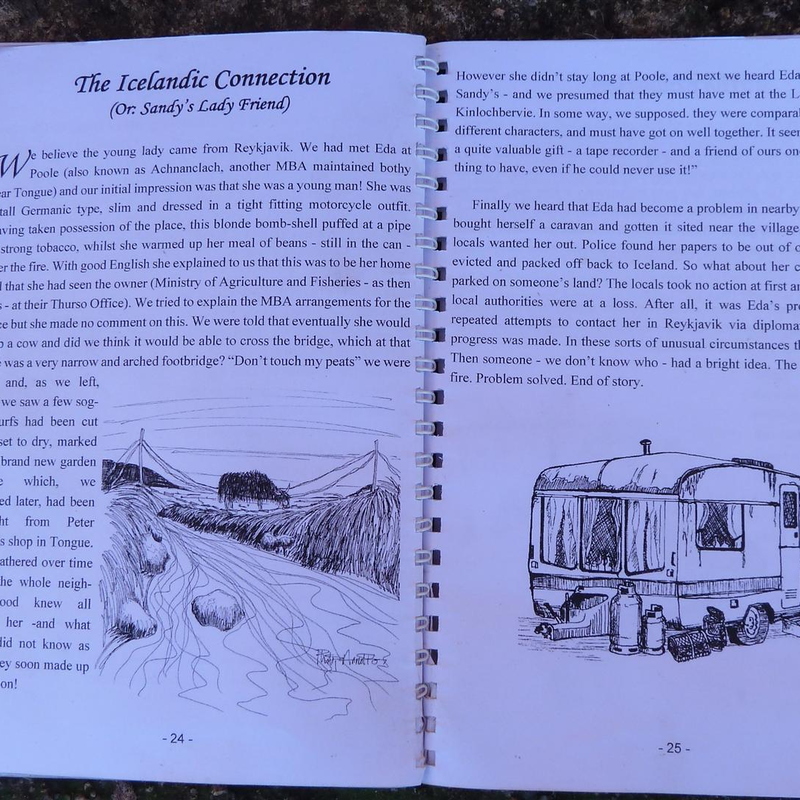 The Icelandic Connection
(Or: Sandy's Lady Friend)
We believe the young lady came from Reykjavik. We had met Eda at
Poole (also known as Achnanclach, another MBA maintained bothy
ear Tongue) and our initial impression was that she was a young man! She was
tall Germanic type, slim and dressed in a tight fitting motorcycle outfit.
ving taken possession of the place, this blonde bomb-shell puffed at a pipe
strong tobacco, whilst she warmed up her meal of beans - still in the can -
er the fire. With good English she explained to us that this was to be her home
l that she had seen the owner (Ministry of Agriculture and Fisheries - as then
s - at their Thurso Office). We tried to explain the MBA arrangements for the
ce but she made no comment on this. We were told that eventually she would
p a cow and did we think it would be able to cross the bridge, which at that
e was a very narrow and arched footbridge? “Don't touch my peats” we were
and, as we left,
we saw a few sog-
urfs had been cut
set to dry, marked
brand new garden
e which, we
ed later, had been
ht from Peter
s shop in Tongue.
athered over time
he whole neigh-
ood knew all
her -and what
did not know as
ey soon made up
on!
- 24 -
However she didn't stay long at Poole, and next we heard Eda
Sandy's - and we presumed that they must have met at the L
Kinlochbervie. In some way, we supposed. they were comparal
different characters, and must have got on well together. It seem
a quite valuable gift - a tape recorder - and a friend of ours on
thing to have, even if he could never use it!”
Finally we heard that Eda had become a problem in nearby
bought herself a caravan and gotten it sited near the village
locals wanted her out. Police found her papers to be out of o
evicted and packed off back to Iceland. So what about her c
parked on someone's land? The locals took no action at first an
local authorities were at a loss. After all, it was Eda's pro
repeated attempts to contact her in Reykjavik via diploma
progress was made. In these sorts of unusual circumstances th
Then someone - we don't know who - had a bright idea. The
fire. Problem solved. End of story.
- 25 -